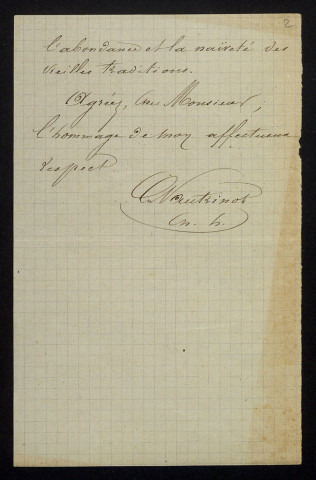 2
l'abondance et la naïveté des
vieilles traditions.
Agréez, cher Monsieur,
l'hommage de mon affectueux
respect